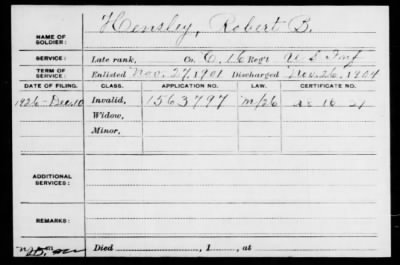 NAME OF SOLDIER: Hensley, Robert B.
SERVICE: Late rank, Co. C, 16 Reg't U S Inf
TERM OF SERVICE: Enlisted Nov. 27, 1901 Discharged Nov. 26, 1904
DATE OF FILING. CLASS. APPLICATION NO. LAW. CERTIFICATE NO.
1926-Dec. 10 Invalid, 1563797 m/26
Widow,
Minor,
ADDITIONAL SERVICES:
REMARKS:
Died , 1 , at